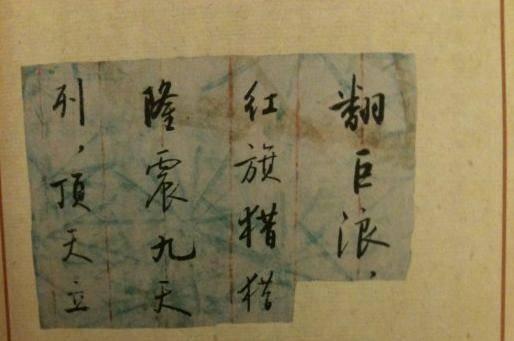 翻巨浪，
红旗猎猎
隆震九天
列，顶天立